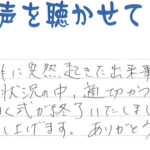 声を聴かせて
に突然起きた出来事
状況の中、適切かつ
く式が終了いたしまし
し上げます。ありがとう